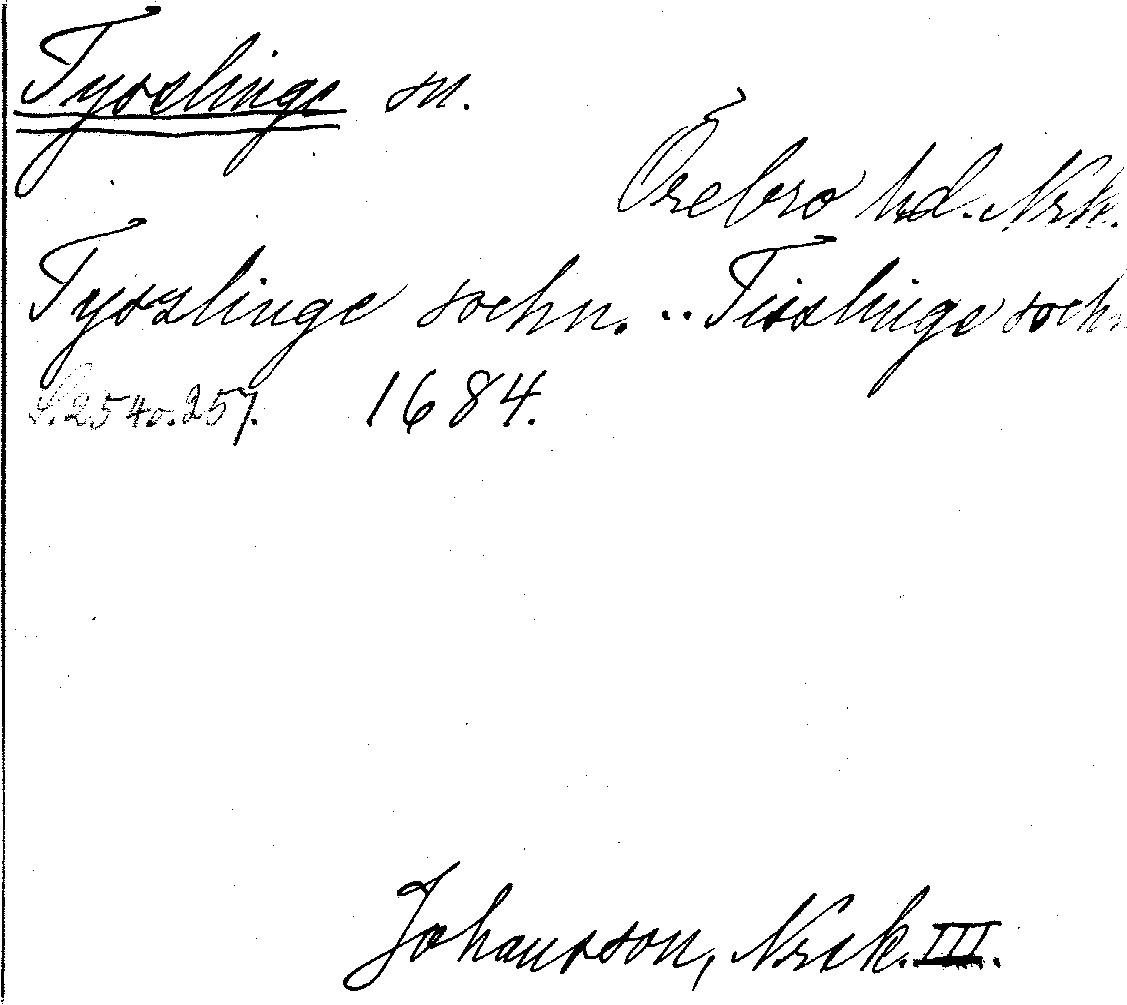 Tysslinge sn.
Örebro hd. Nrk.
Tysslinge sochn. .. Tisslinge sochn
S. 254 o. 257. 1684.
Johansson, Nrk. III.